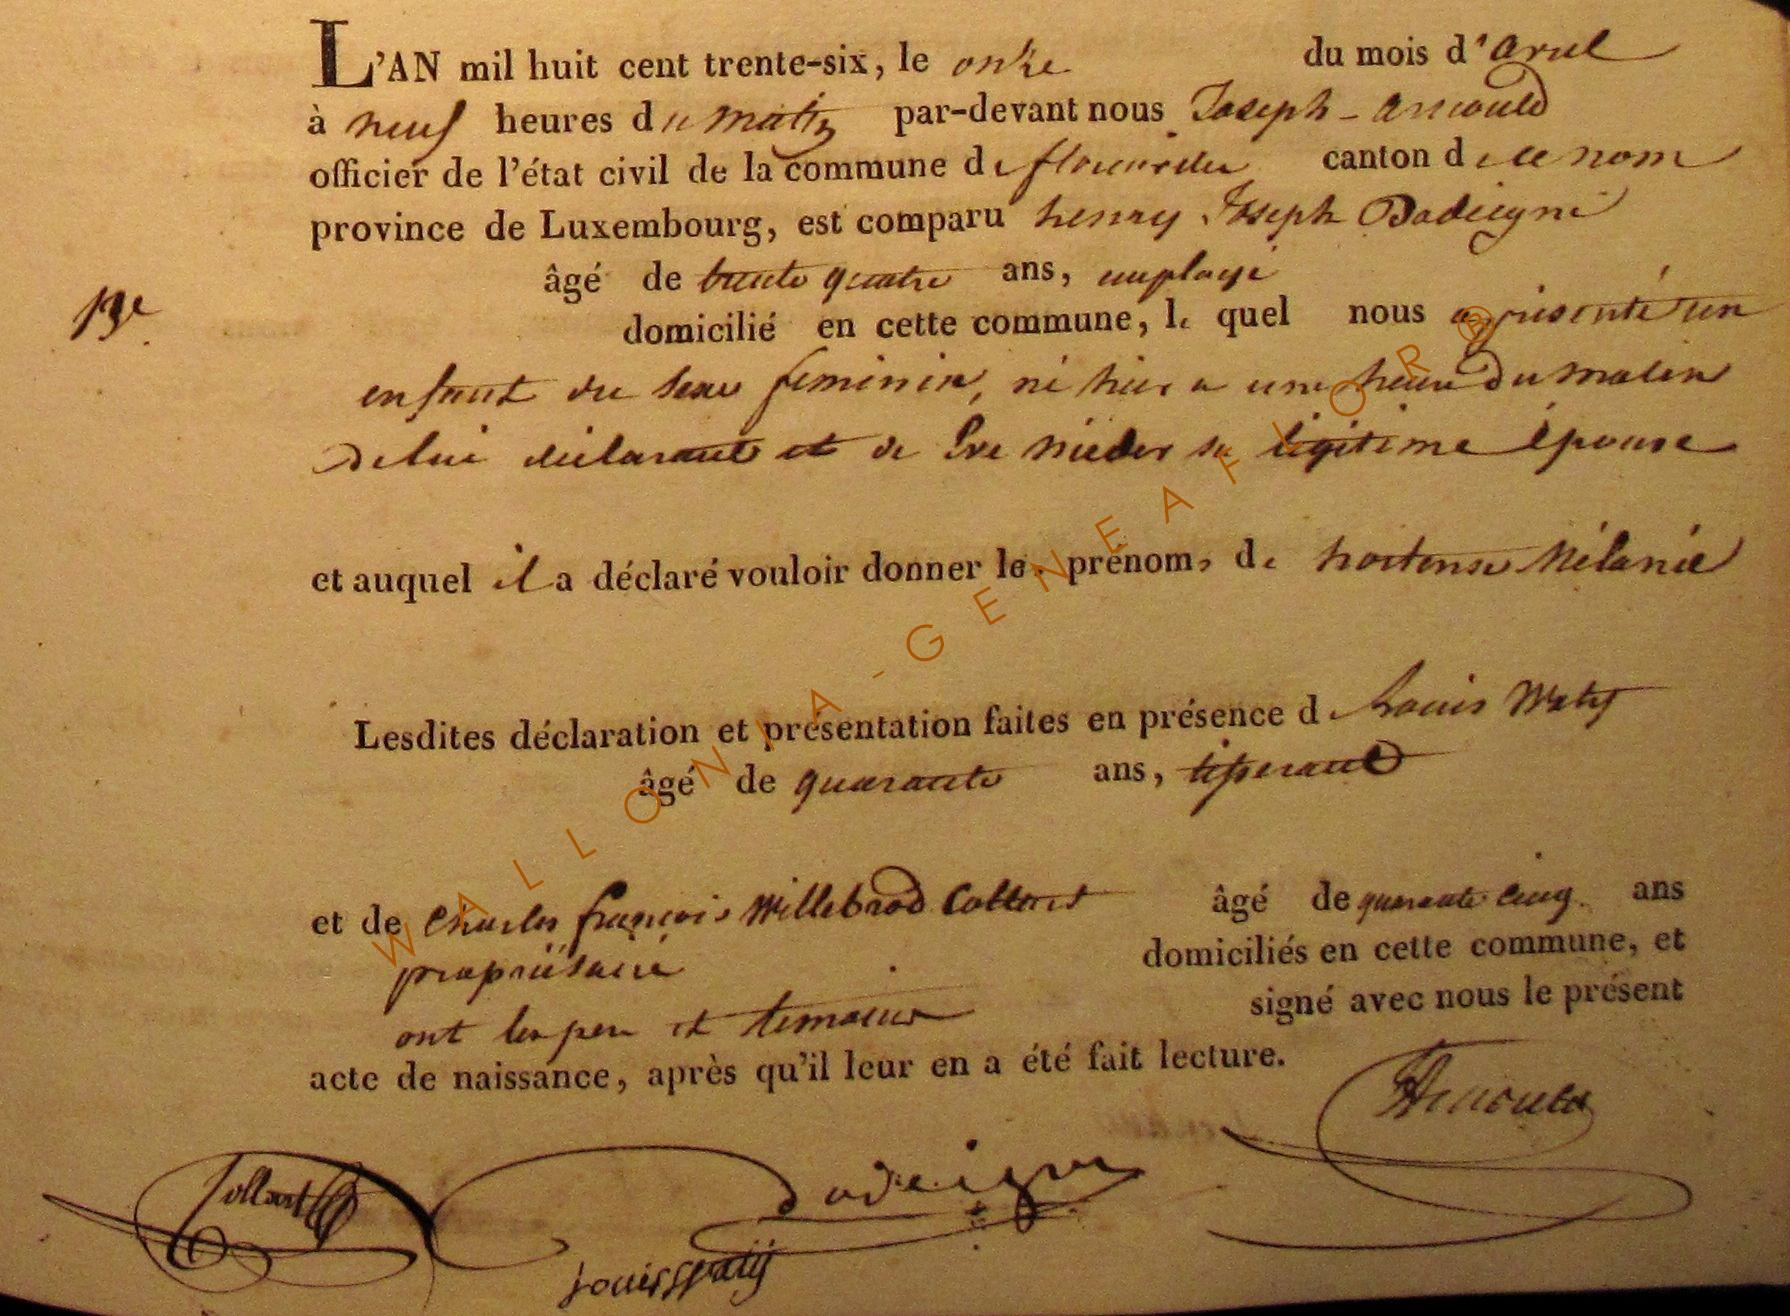 L'AN mil huit cent trente-six, le onze du mois d'avril
à neuf heures du matin par-devant nous Joseph - Arnould
officier de l'état civil de la commune de florenville canton de ce nom
province de Luxembourg, est comparu henry Joseph Dadeigne
âgé de trente quatre ans, employé
13e. domicilié en cette commune, le quel nous a présenté un
enfant du sexe feminin, né hier a une heure du matin
de lui déclarant et de Eve Nieder sa légitime épouse
et auquel il a déclaré vouloir donner les prénoms de hortense Mélanie
Lesdites déclaration et présentation faites en présence de Louis Watij
âgé de quarante ans, tisserand
et de Charles françois Willebrod Collart âgé de quarante cinq ans
propriétaire domiciliés en cette commune, et
ont les pere et temoins signé avec nous le présent
acte de naissance, après qu'il leur en a été fait lecture.
JArnould
Collart Dadeigne
Louis Watij
WALLONIA-GENEAFLOR